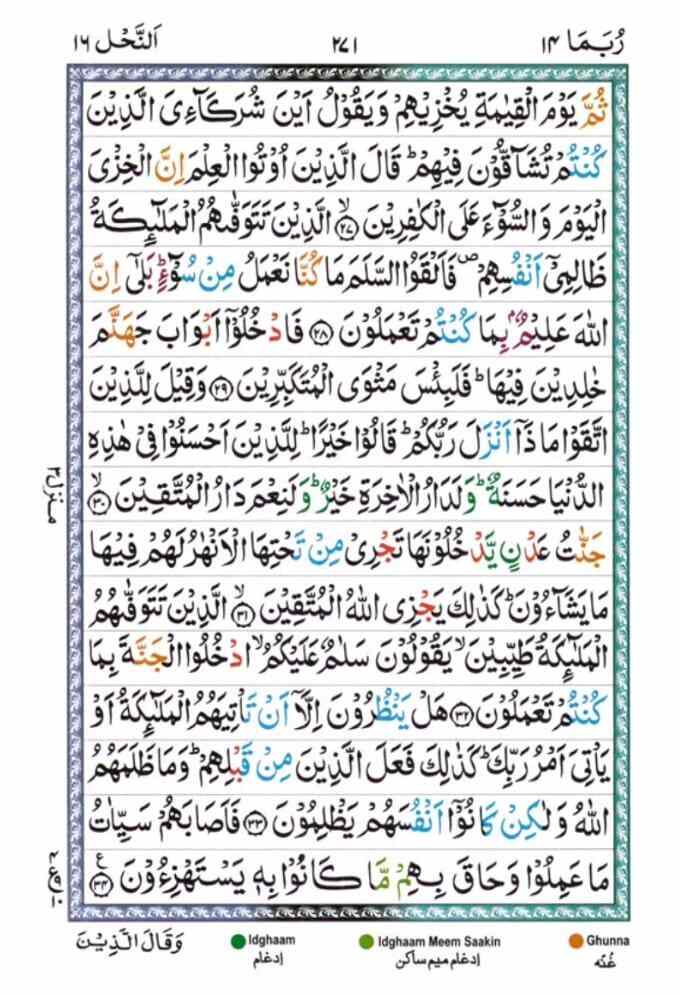 رُبَمَا ۱۴
۲۷۱
اَلنَّحْل ۱۶
ثُمَّ يَوْمَ الْقِيٰمَةِ يُخْزِيْهِمْ وَيَقُوْلُ اَيْنَ شُرَكَآءِيَ الَّذِيْنَ
كُنْتُمْ تُشَآقُّوْنَ فِيْهِمْ ؕ قَالَ الَّذِيْنَ اُوْتُوا الْعِلْمَ اِنَّ الْخِزْيَ
الْيَوْمَ وَالسُّوْٓءَ عَلَى الْكٰفِرِيْنَ ۙ‏﴿۲۷﴾ الَّذِيْنَ تَتَوَفّٰىهُمُ الْمَلٰٓئِكَةُ
ظَالِمِيْۤ اَنْفُسِهِمْ ۪ فَاَلْقَوُا السَّلَمَ مَا كُنَّا نَعْمَلُ مِنْ سُوْٓءٍ ؕ بَلٰۤى اِنَّ
اللّٰهَ عَلِيْمٌۢ بِمَا كُنْتُمْ تَعْمَلُوْنَ ﴿۲۸﴾ فَادْخُلُوْۤا اَبْوَابَ جَهَنَّمَ
خٰلِدِيْنَ فِيْهَا ؕ فَلَبِئْسَ مَثْوَى الْمُتَكَبِّرِيْنَ ﴿۲۹﴾ وَقِيْلَ لِلَّذِيْنَ
اتَّقَوْا مَاذَاۤ اَنْزَلَ رَبُّكُمْ ؕ قَالُوْا خَيْرًا ؕ لِلَّذِيْنَ اَحْسَنُوْا فِيْ هٰذِهِ
الدُّنْيَا حَسَنَةٌ ؕ وَلَدَارُ الْاٰخِرَةِ خَيْرٌ ؕ وَلَنِعْمَ دَارُ الْمُتَّقِيْنَ ۙ‏﴿۳۰﴾
جَنّٰتُ عَدْنٍ يَّدْخُلُوْنَهَا تَجْرِيْ مِنْ تَحْتِهَا الْاَنْهٰرُ لَهُمْ فِيْهَا
مَا يَشَآءُوْنَ ؕ كَذٰلِكَ يَجْزِي اللّٰهُ الْمُتَّقِيْنَ ۙ‏﴿۳۱﴾ الَّذِيْنَ تَتَوَفّٰىهُمُ
الْمَلٰٓئِكَةُ طَيِّبِيْنَ ۙ يَقُوْلُوْنَ سَلٰمٌ عَلَيْكُمُ ۙ ادْخُلُوا الْجَنَّةَ بِمَا
كُنْتُمْ تَعْمَلُوْنَ ﴿۳۲﴾ هَلْ يَنْظُرُوْنَ اِلَّاۤ اَنْ تَاْتِيَهُمُ الْمَلٰٓئِكَةُ اَوْ
يَاْتِيَ اَمْرُ رَبِّكَ ؕ كَذٰلِكَ فَعَلَ الَّذِيْنَ مِنْ قَبْلِهِمْ ؕ وَمَا ظَلَمَهُمُ
اللّٰهُ وَلٰكِنْ كَانُوْۤا اَنْفُسَهُمْ يَظْلِمُوْنَ ﴿۳۳﴾ فَاَصَابَهُمْ سَيِّاٰتُ
مَا عَمِلُوْا وَحَاقَ بِهِمْ مَّا كَانُوْا بِهٖ يَسْتَهْزِءُوْنَ ﴿۳۴﴾ ع
منزل ۳
وَقَالَ الَّذِيْنَ
Idghaam
ادغام
Idghaam Meem Saakin
ادغام میم ساکن
Ghunna
غُنّه